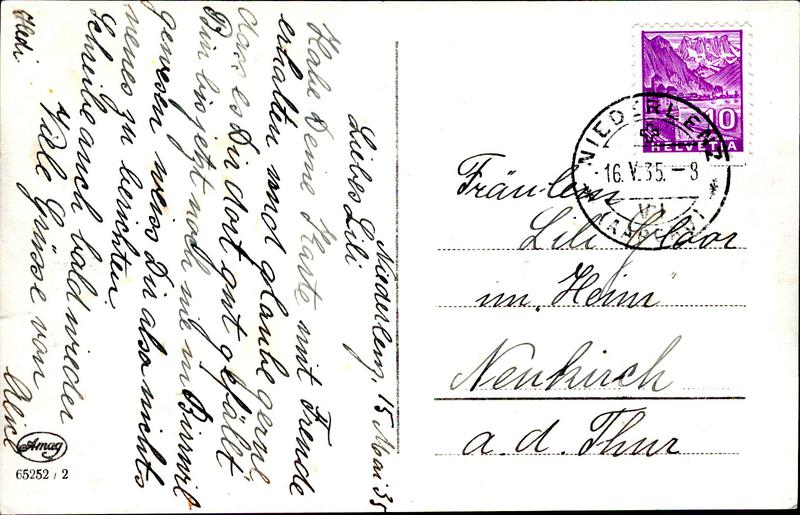 Niederlenz, 15 Mai 35
Liebes Lili
Habe Deine Karte mit Freude
erhalten und glaube gerne
dass es Dir dort gut gefällt.
Bin bis jetzt noch nie in Birrwil
gewesen weiss Dir also nichts
neues zu berichten.
Schreibe auch bald wieder
Viele Grüsse von
Alice
Hedi
Amag
65252 / 2
10
HELVETIA
NIEDERLENZ
16. V. 35. - 8
Fräulein
Lili Gloor
im "Heim"
Neukirch
a. d. Thur